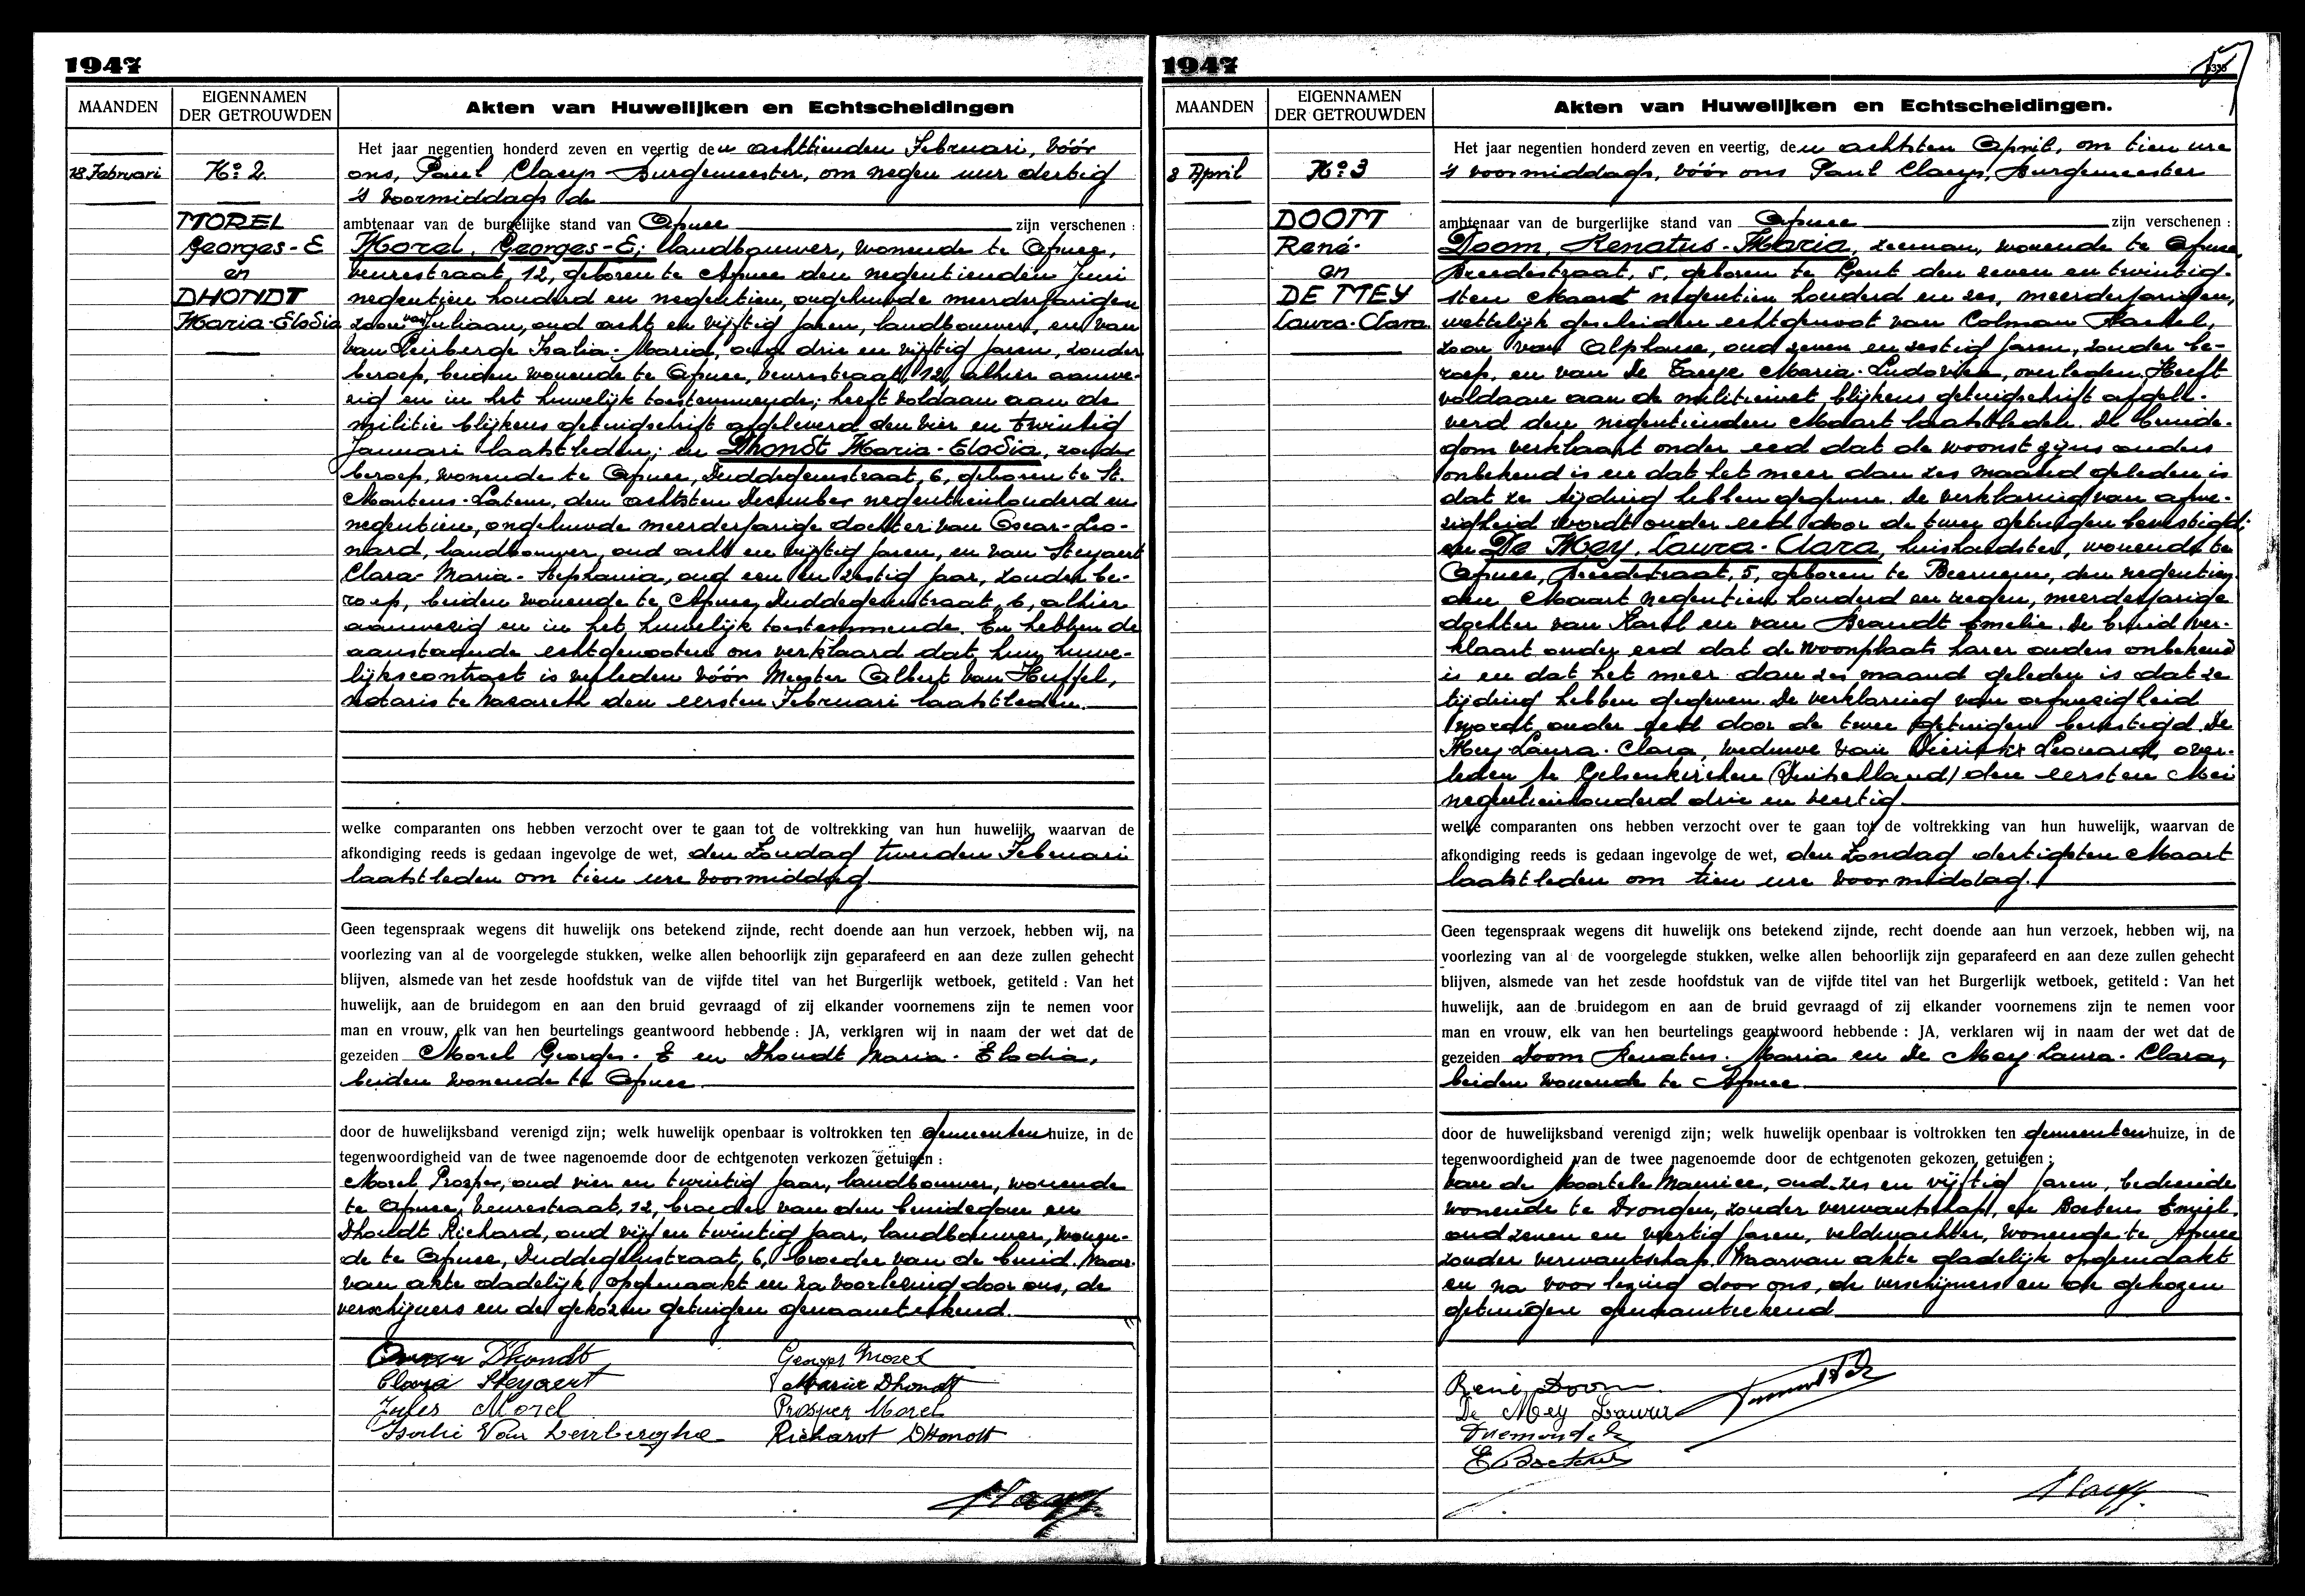 1947
MAANDEN
EIGENNAMEN
DER GETROUWDEN
Akten van Huwelijken en Echtscheidingen
18 Februari
No 2
MOREL
Georges-E
en
DHONDT
Maria-Elodia
Het jaar negentien honderd zeven en veertig den achttienden Februari, vóór
ons, Paul Claeys Burgemeester, om negen uur dertig
's voormiddags de
ambtenaar van de burgelijke stand van Afsnee zijn verschenen :
Morel, Georges-E; landbouwer, wonende te Afsnee,
Veurestraat, 12, geboren te Afsnee den negentienden Juni
negentien honderd en negentien, ongehuwde meerderjarigen
zoon van Juliaan, oud acht en vijftig jaren, landbouwer, en van
Van Leirberge Isalia-Maria, oud drie en vijftig jaren, zonder
beroep, beiden wonende te Afsnee, Veurestraat, 12, alhier aanwe-
zig en in het huwelijk toestemmende; heeft voldaan aan de
militie blijkens getuigschrift afgeleverd den vier en twintig
Januari laatstleden; en Dhondt Maria-Elodia, zonder
beroep, wonende te Afsnee, Duddegemstraat, 6, geboren te St.
Martens-Latem, den achtsten December negentienhonderd en
negentien, ongehuwde meerderjarige dochter van Oscar-Leo-
nard, landbouwer, oud acht en vijftig jaren, en van Steyaert
Clara-Maria-Stephania, oud een en zestig jaar, zonder be-
roep, beiden wonende te Afsnee, Duddegemstraat, 6, alhier
aanwezig en in het huwelijk toestemmende. En hebben de
aanstaande echtgenooten ons verklaard dat hun huwe-
lijkscontract is verleden vóór Meester Albert Van Huffel,
notaris te Nazareth den eersten Februari laatstleden.
welke comparanten ons hebben verzocht over te gaan tot de voltrekking van hun huwelijk, waarvan de
afkondiging reeds is gedaan ingevolge de wet, den Zondag tweeden Februari
laatstleden om tien ure voormiddag
Geen tegenspraak wegens dit huwelijk ons betekend zijnde, recht doende aan hun verzoek, hebben wij, na
voorlezing van al de voorgelegde stukken, welke allen behoorlijk zijn geparafeerd en aan deze zullen gehecht
blijven, alsmede van het zesde hoofdstuk van de vijfde titel van het Burgerlijk wetboek, getiteld : Van het
huwelijk, aan de bruidegom en aan den bruid gevraagd of zij elkander voornemens zijn te nemen voor
man en vrouw, elk van hen beurtelings geantwoord hebbende : JA, verklaren wij in naam der wet dat de
gezeiden Morel Georges-E en Dhondt Maria-Elodia,
beiden wonende te Afsnee.
door de huwelijksband verenigd zijn; welk huwelijk openbaar is voltrokken ten gemeentenhuize, in de
tegenwoordigheid van de twee nagenoemde door de echtgenoten verkozen getuigen :
Morel Prosper, oud vier en twintig jaar, landbouwer, wonende
te Afsnee, Veurestraat, 12, broeder van den bruidegom en
Dhondt Richard, oud vijf en twintig jaar, landbouwer, wonen-
de te Afsnee, Duddegemstraat, 6, broeder van de bruid. Waar-
van akte dadelijk opgemaakt en na voorlezing door ons, de
verschijners en de gekozen getuigen genaamtekend.
Dhondt
Georges Morel
Clara Steyaert
Maria Dhondt
Jules Morel
Prosper Morel
Isalie Van Leirberghe
Richard DHondt
1947
MAANDEN
EIGENNAMEN
DER GETROUWDEN
Akten van Huwelijken en Echtscheidingen.
8 April
No 3
DOOM
René-
en
DE MEY
Laura-Clara
Het jaar negentien honderd zeven en veertig, den achtsten April, om tien ure
's voormiddags, vóór ons Paul Claeys, Burgemeester
ambtenaar van de burgerlijke stand van Afsnee zijn verschenen :
Doom, Renatus-Maria, zeeman, wonende te Afsnee,
Breedestraat, 5, geboren te Gent den zeven en twintig-
sten Maart negentien honderd en zes, meerderjarigen,
wettelijk gescheiden echtgenoot van Colman Rachel,
zoon van Alphonse, oud zeven en zestig jaren, zonder be-
roep, en van De Taeye Maria-Ludovica, overleden. Heeft
voldaan aan de militiewet blijkens getuigschrift afgele-
verd den negentienden Maart laatstleden. De bruide-
gom verklaart onder eed dat de woonst zijns ouders
onbekend is en dat het meer dan zes maand geleden is
dat ze tijding hebben gegeven. De verklaring van afwe-
zigheid wordt onder eed door de twee getuigen bevestigd;
en De Mey, Laura-Clara, huishoudster, wonende te
Afsnee, Breedestraat, 5, geboren te Beernem, den negentien-
den Maart negentien honderd en negen, meerderjarige
dochter van Karel en van Brandt Emelie. De bruid ver-
klaart onder eed dat de woonplaats harer ouders onbekend
is en dat het meer dan zes maand geleden is dat ze
tijding hebben gegeven. De verklaring van afwezigheid
wordt onder eed door de twee getuigen bevestigd. De
Mey Laura-Clara, weduwe van Dierickx Leonard, over-
leden te Gelsenkirchen (Duitschland) den eersten Mei
negentienhonderd drie en veertig.
welke comparanten ons hebben verzocht over te gaan tot de voltrekking van hun huwelijk, waarvan de
afkondiging reeds is gedaan ingevolge de wet, den Zondag dertigsten Maart
laatstleden om tien ure voormiddag.
Geen tegenspraak wegens dit huwelijk ons betekend zijnde, recht doende aan hun verzoek, hebben wij, na
voorlezing van al de voorgelegde stukken, welke allen behoorlijk zijn geparafeerd en aan deze zullen gehecht
blijven, alsmede van het zesde hoofdstuk van de vijfde titel van het Burgerlijk wetboek, getiteld : Van het
huwelijk, aan de bruidegom en aan de bruid gevraagd of zij elkander voornemens zijn te nemen voor
man en vrouw, elk van hen beurtelings geantwoord hebbende : JA, verklaren wij in naam der wet dat de
gezeiden Doom Renatus-Maria en De Mey Laura-Clara,
beiden wonende te Afsnee
door de huwelijksband verenigd zijn; welk huwelijk openbaar is voltrokken ten gemeentenhuize, in de
tegenwoordigheid van de twee nagenoemde door de echtgenoten gekozen getuigen :
Van de Maurice, oud zes en vijftig jaren, bediende
wonende te Drongen, zonder verwantschap, en Emiel,
oud zeven en veertig jaren, veldwachter, wonende te Afsnee
zonder verwantschap. Waarvan akte dadelijk opgemaakt
en na voorlezing door ons, de verschijners en de gekozen
getuigen genaamtekend
René Doom
De Mey Laura